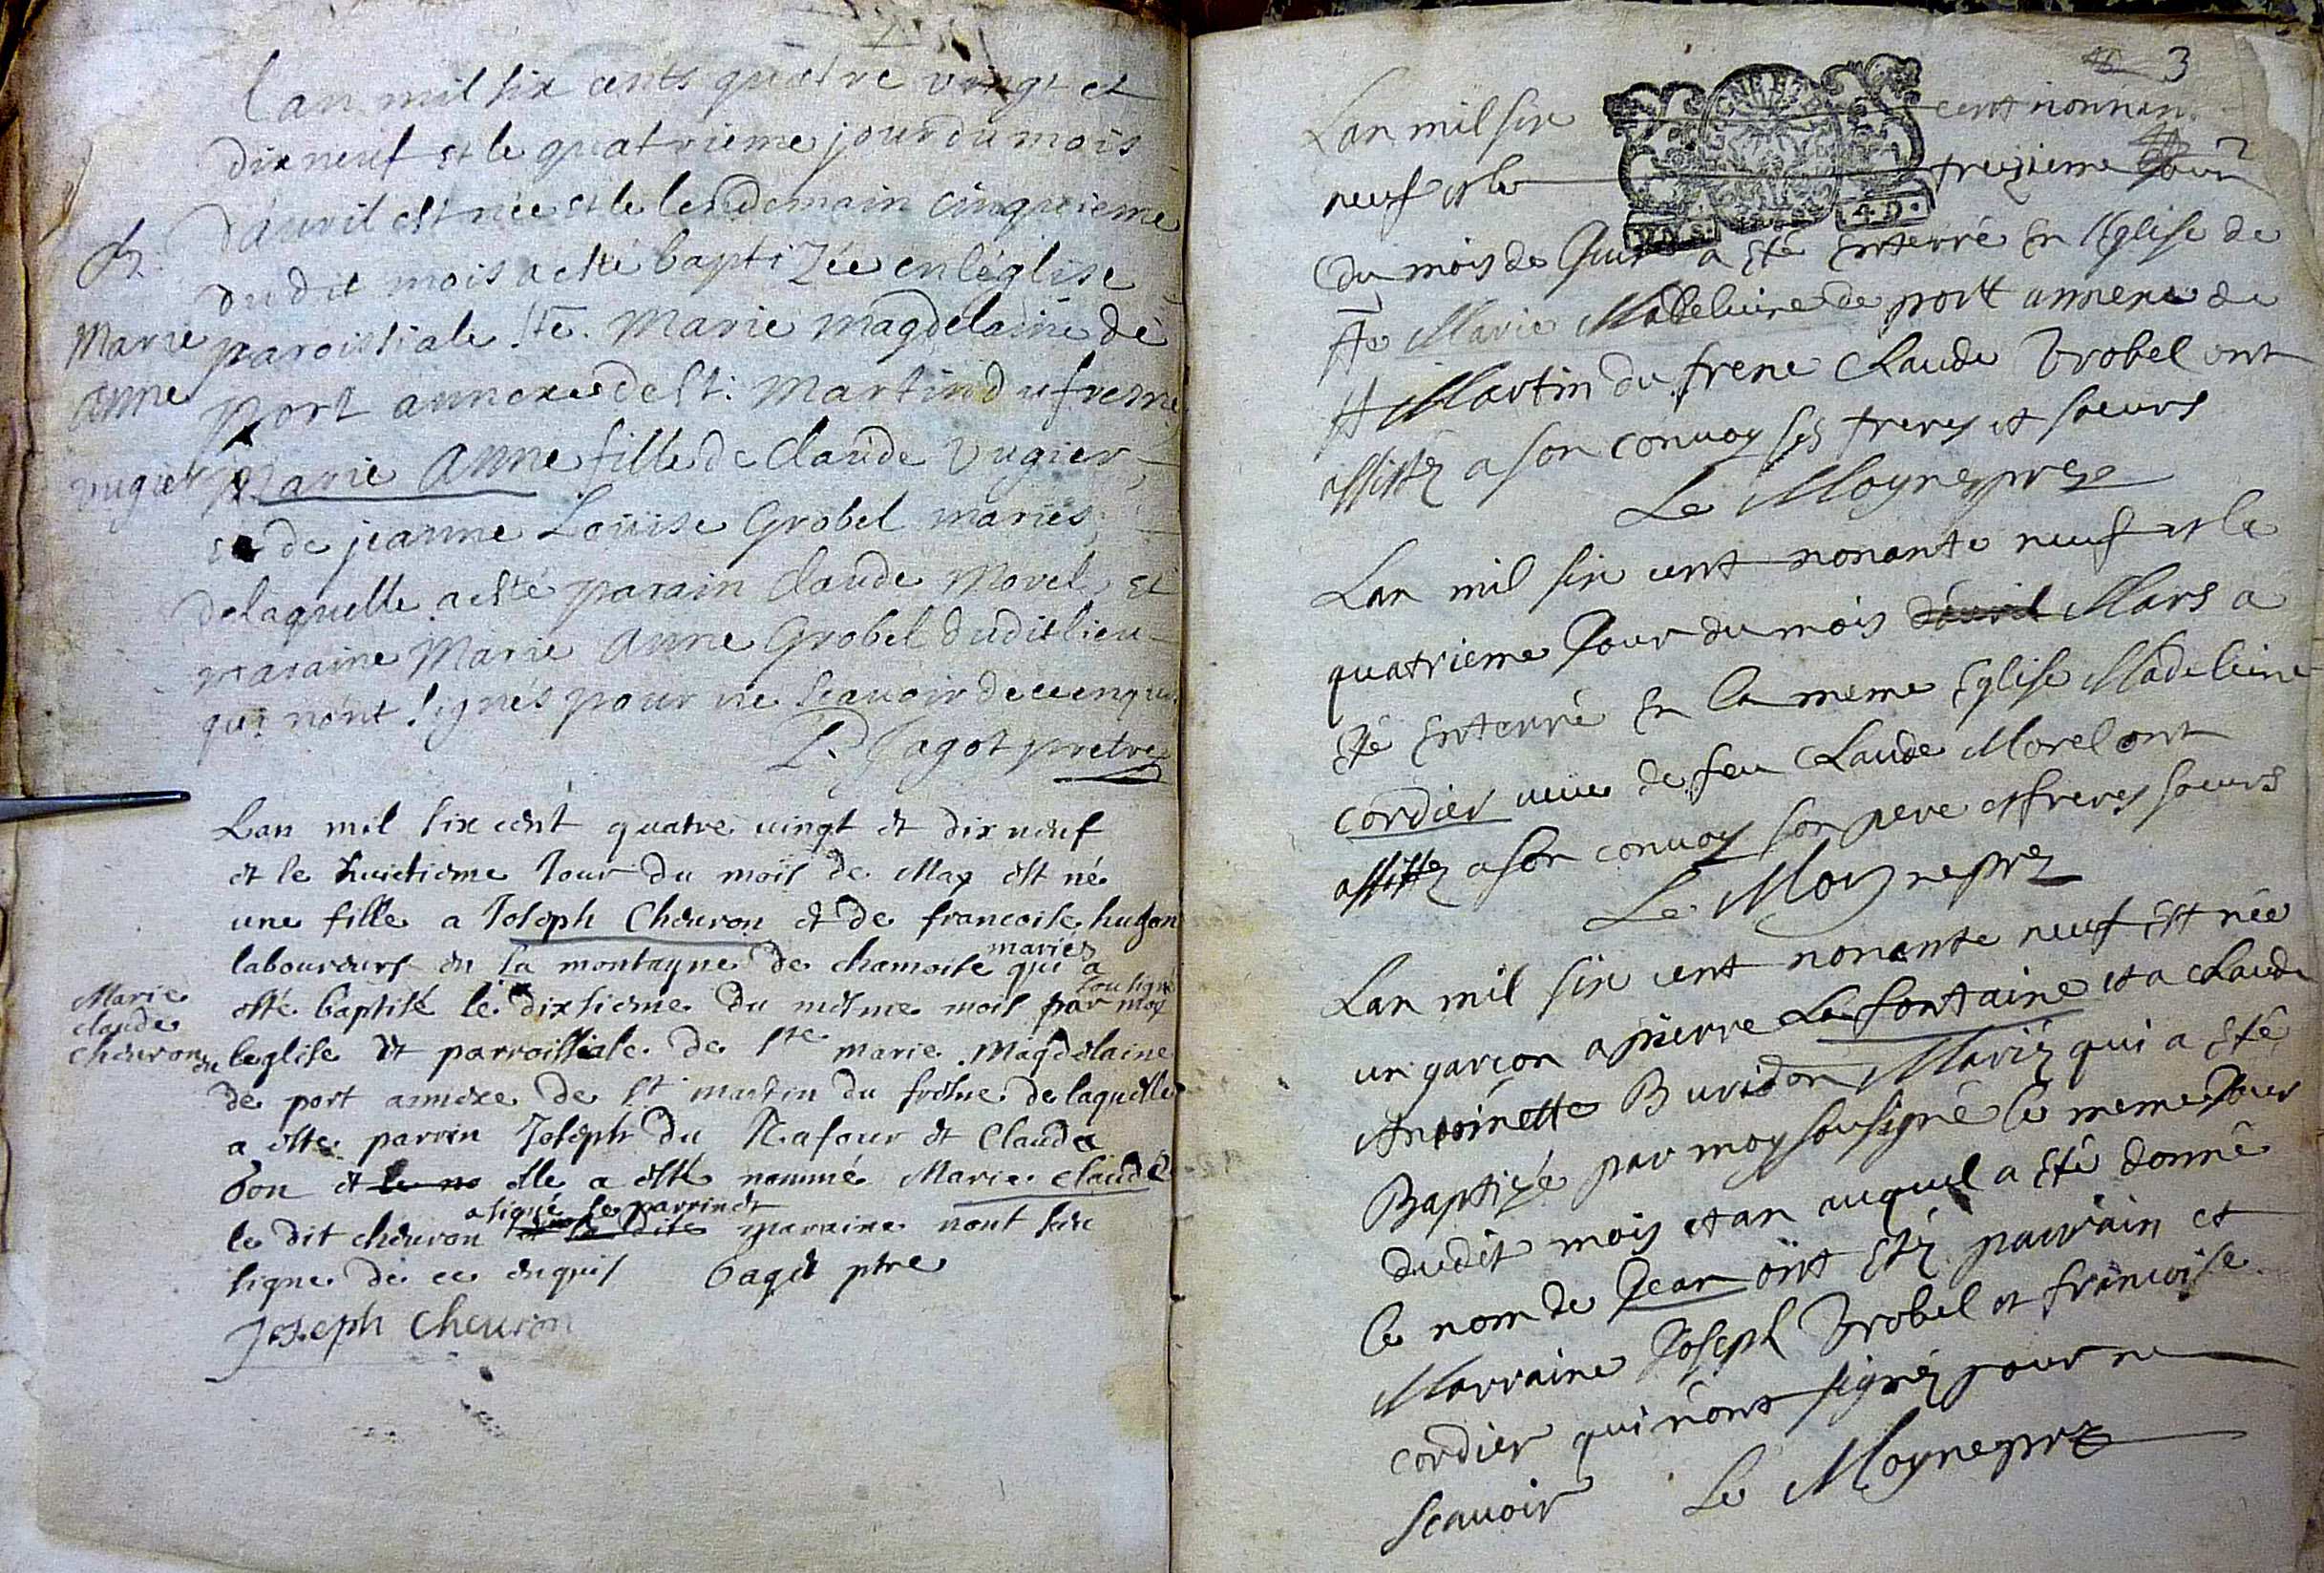 Lan mil six cents quatre vingt et
dix neuf et le quatrieme jour du mois
d'auril est née et le lendemain cinquieme
B.
du dit mois a esté baptizée en léglise
Marie
paroissiale Ste. Marie magdelaine de
Anne
port annexe de St. Martin du fresne
vugier
Marie Anne fille de Claude Vugier
et de jeanne Loüise Grobel mariés
de laquelle a esté parain Claude Morel et
maraine Marie Anne Grobel dudit lieu
qui n'ont signés pour ne scauoir de ce enquis
P. Jagot pretre
Lan mil six cent quatre uingt et dix neuf
et le huictieme Jour du mois de May est né
une fille a Joseph Cheuron et de francoise hugon
mariés
laboureurs en la montagne de chamoise qui a
sousigné
Marie
esté baptisé le dixsieme du mesme mois par moy
claude
cheuron
en leglise et parroissiale de Ste marie Magdelaine
de port annexe de St martin du fresne de laquelle
a este parrin Joseph du Rafour et Claude
bon et le no elle a esté nommé Marie Claude
a signé le parrin et
le dit cheuron et la dite marraine nont sceu
signe de ce enquis bagot ptre
Joseph Cheuron
3
Lan mil six cent nonnan
neuf et le treizieme Jour
du mois de a eté Enterré En l'Eglise de
Ste Marie Madeleine de port annexe de
St Martin du frene Claude Grobel ont
assistez a son conuoy ses freres et soeurs
Le Moyne ptre
Lan mil six cent nonante neuf et le
quatrieme Jour du mois d'auril Mars a
eté Enterré En la meme Eglise Madeleine
cordier veuue de feu Claude Morel ont
assistez a son conuoy son pere et freres soeurs
Le Moyne ptre
Lan mil six cent nonante neuf Est née
un garcon a pierre La fontaine et a Claude
Antoinette Buridon Mariéz qui a eté
Baptizé par moy sousigné le meme Jour
dudit mois et an auquel a eté donné
le nom de Jean ont etéz parrain et
Marraine Joseph Grobel et francoise
cordier qui nont signéz pour ne
scauoir Le Moyne ptre